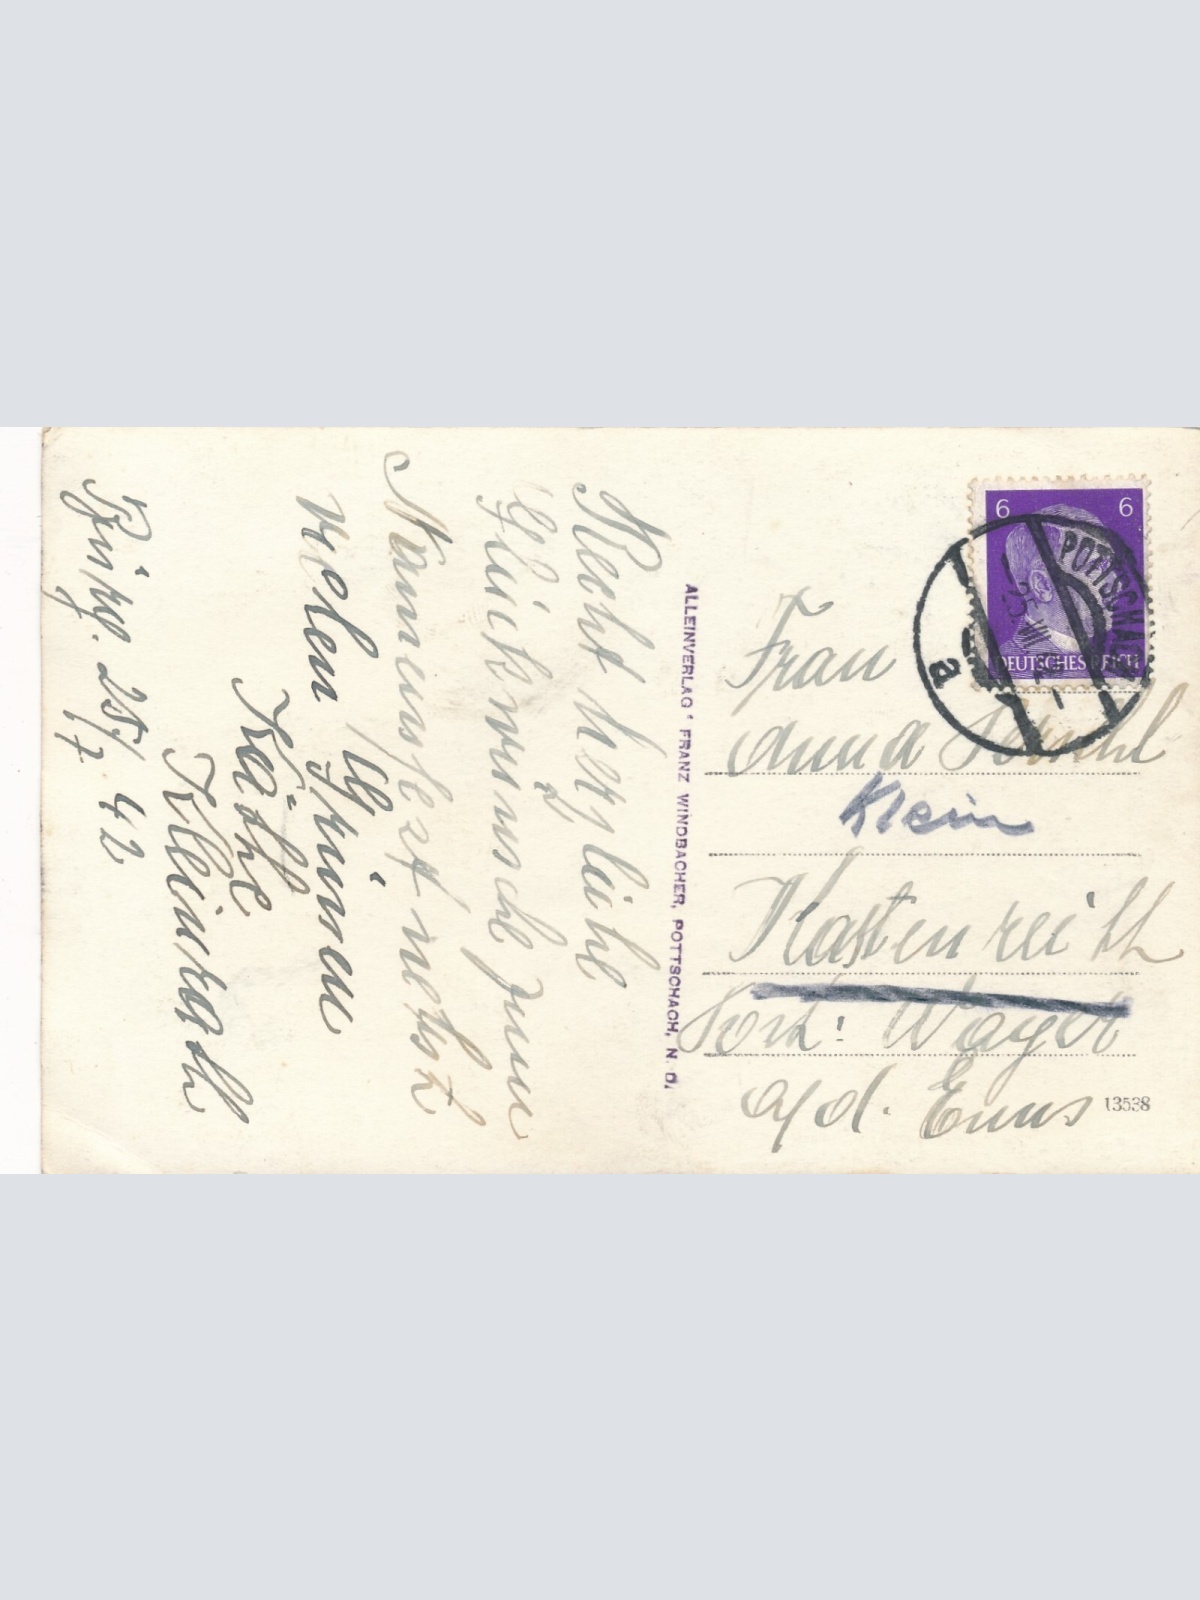 Recht herzliche
Glückwünsche zum
Namensfest nebst
vielen Grüssen
Käthe
Kleinrath
25/7 42
ALLEINVERLAG FRANZ WINDBACHER, POTTSCHACH, N. D.
6 6
DEUTSCHES REICH
POTTSCHACH
25.VII.42
a
Frau
Anna
Klein
Kastenreith
Post: Wayer
a/d. Enns
13538